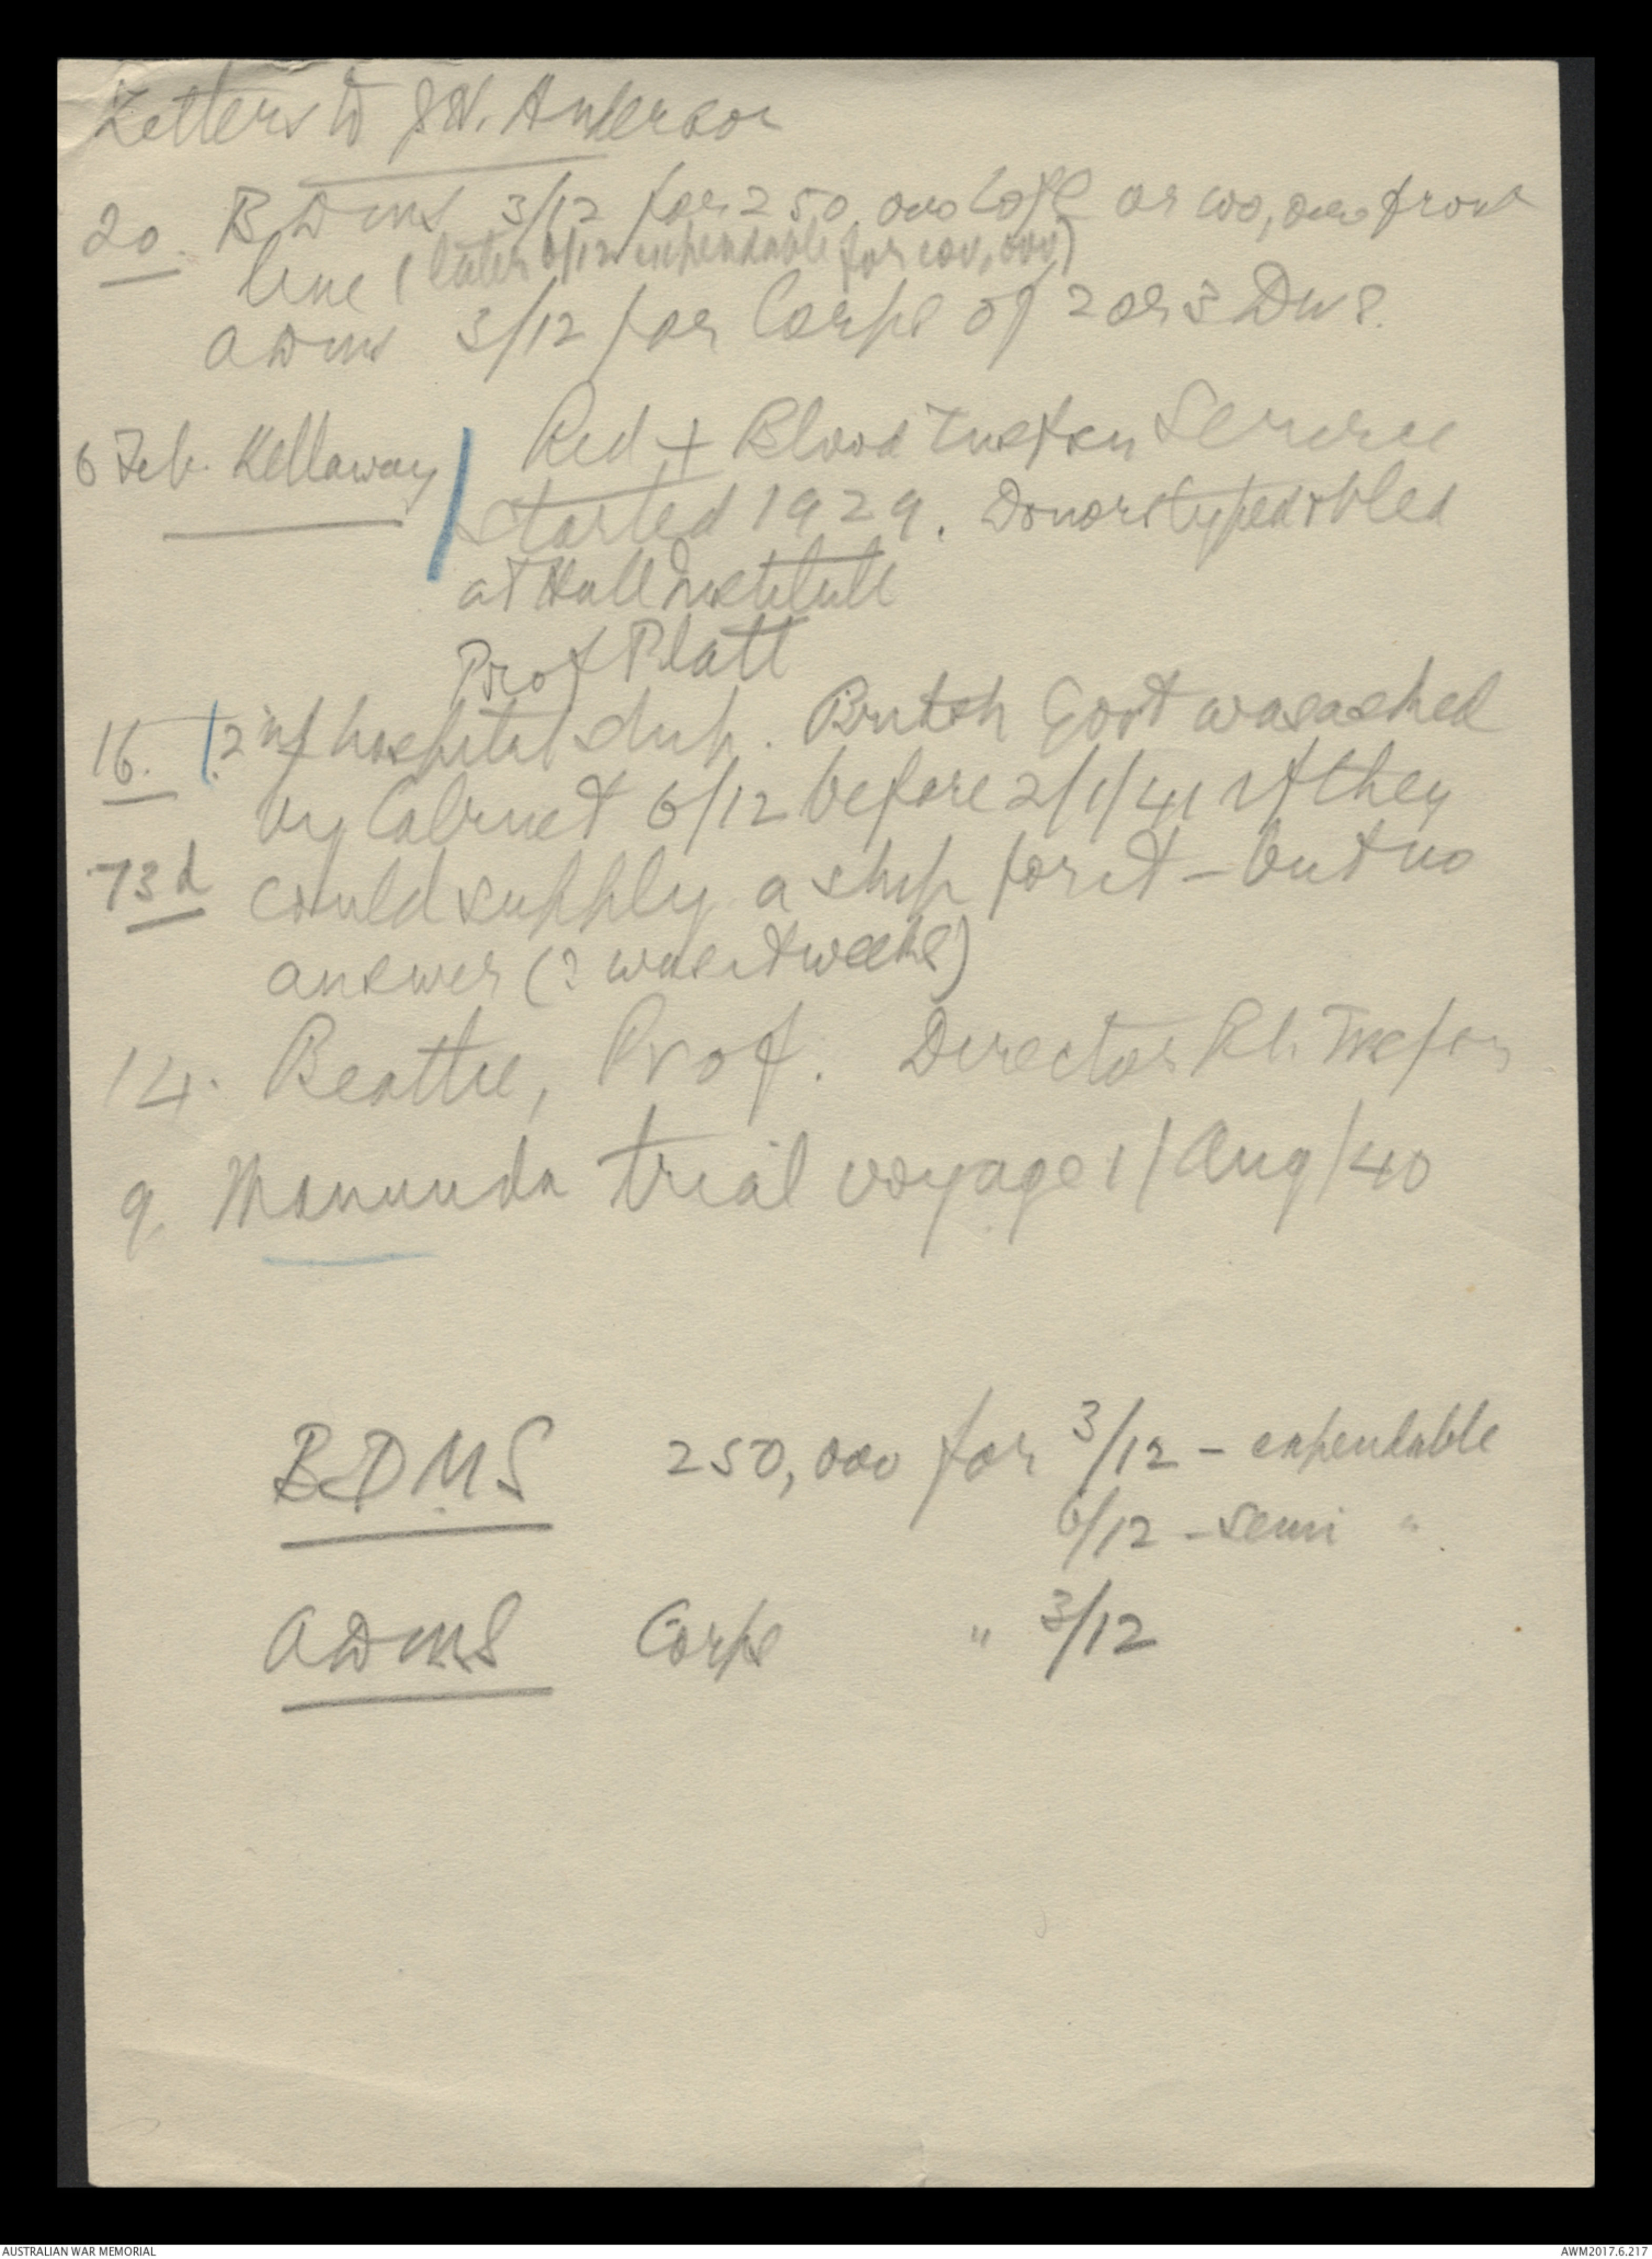 Letters to J.N. Anderson
20. BDMS 3/12 for 250,000 L of C or 100,000 front
line (later 6/12 expendable for 100,000)
ADMS 3/12 for Corps of 2 or 3 Divs.
6 Feb. Kellaway Red + Blood Tnsfsn Service
started 1929. Donors typed & bled
at Hall Institute
Prof Platt
16. 2nd hospital ship. British Govt was asked
by Cabinet 6/12 before 2/1/41 if they
73d could supply a ship for it - but no
answer (? was it weeks)
14. Beattie, Prof. Director Bl. Tnsfsn
9. Manunda trial voyage 1/Aug/40
BDMS 250,000 for 3/12 - expendable
6/12 - semi "
ADMS Corps " 3/12
AUSTRALIAN WAR MEMORIAL
AWM2017.6.217